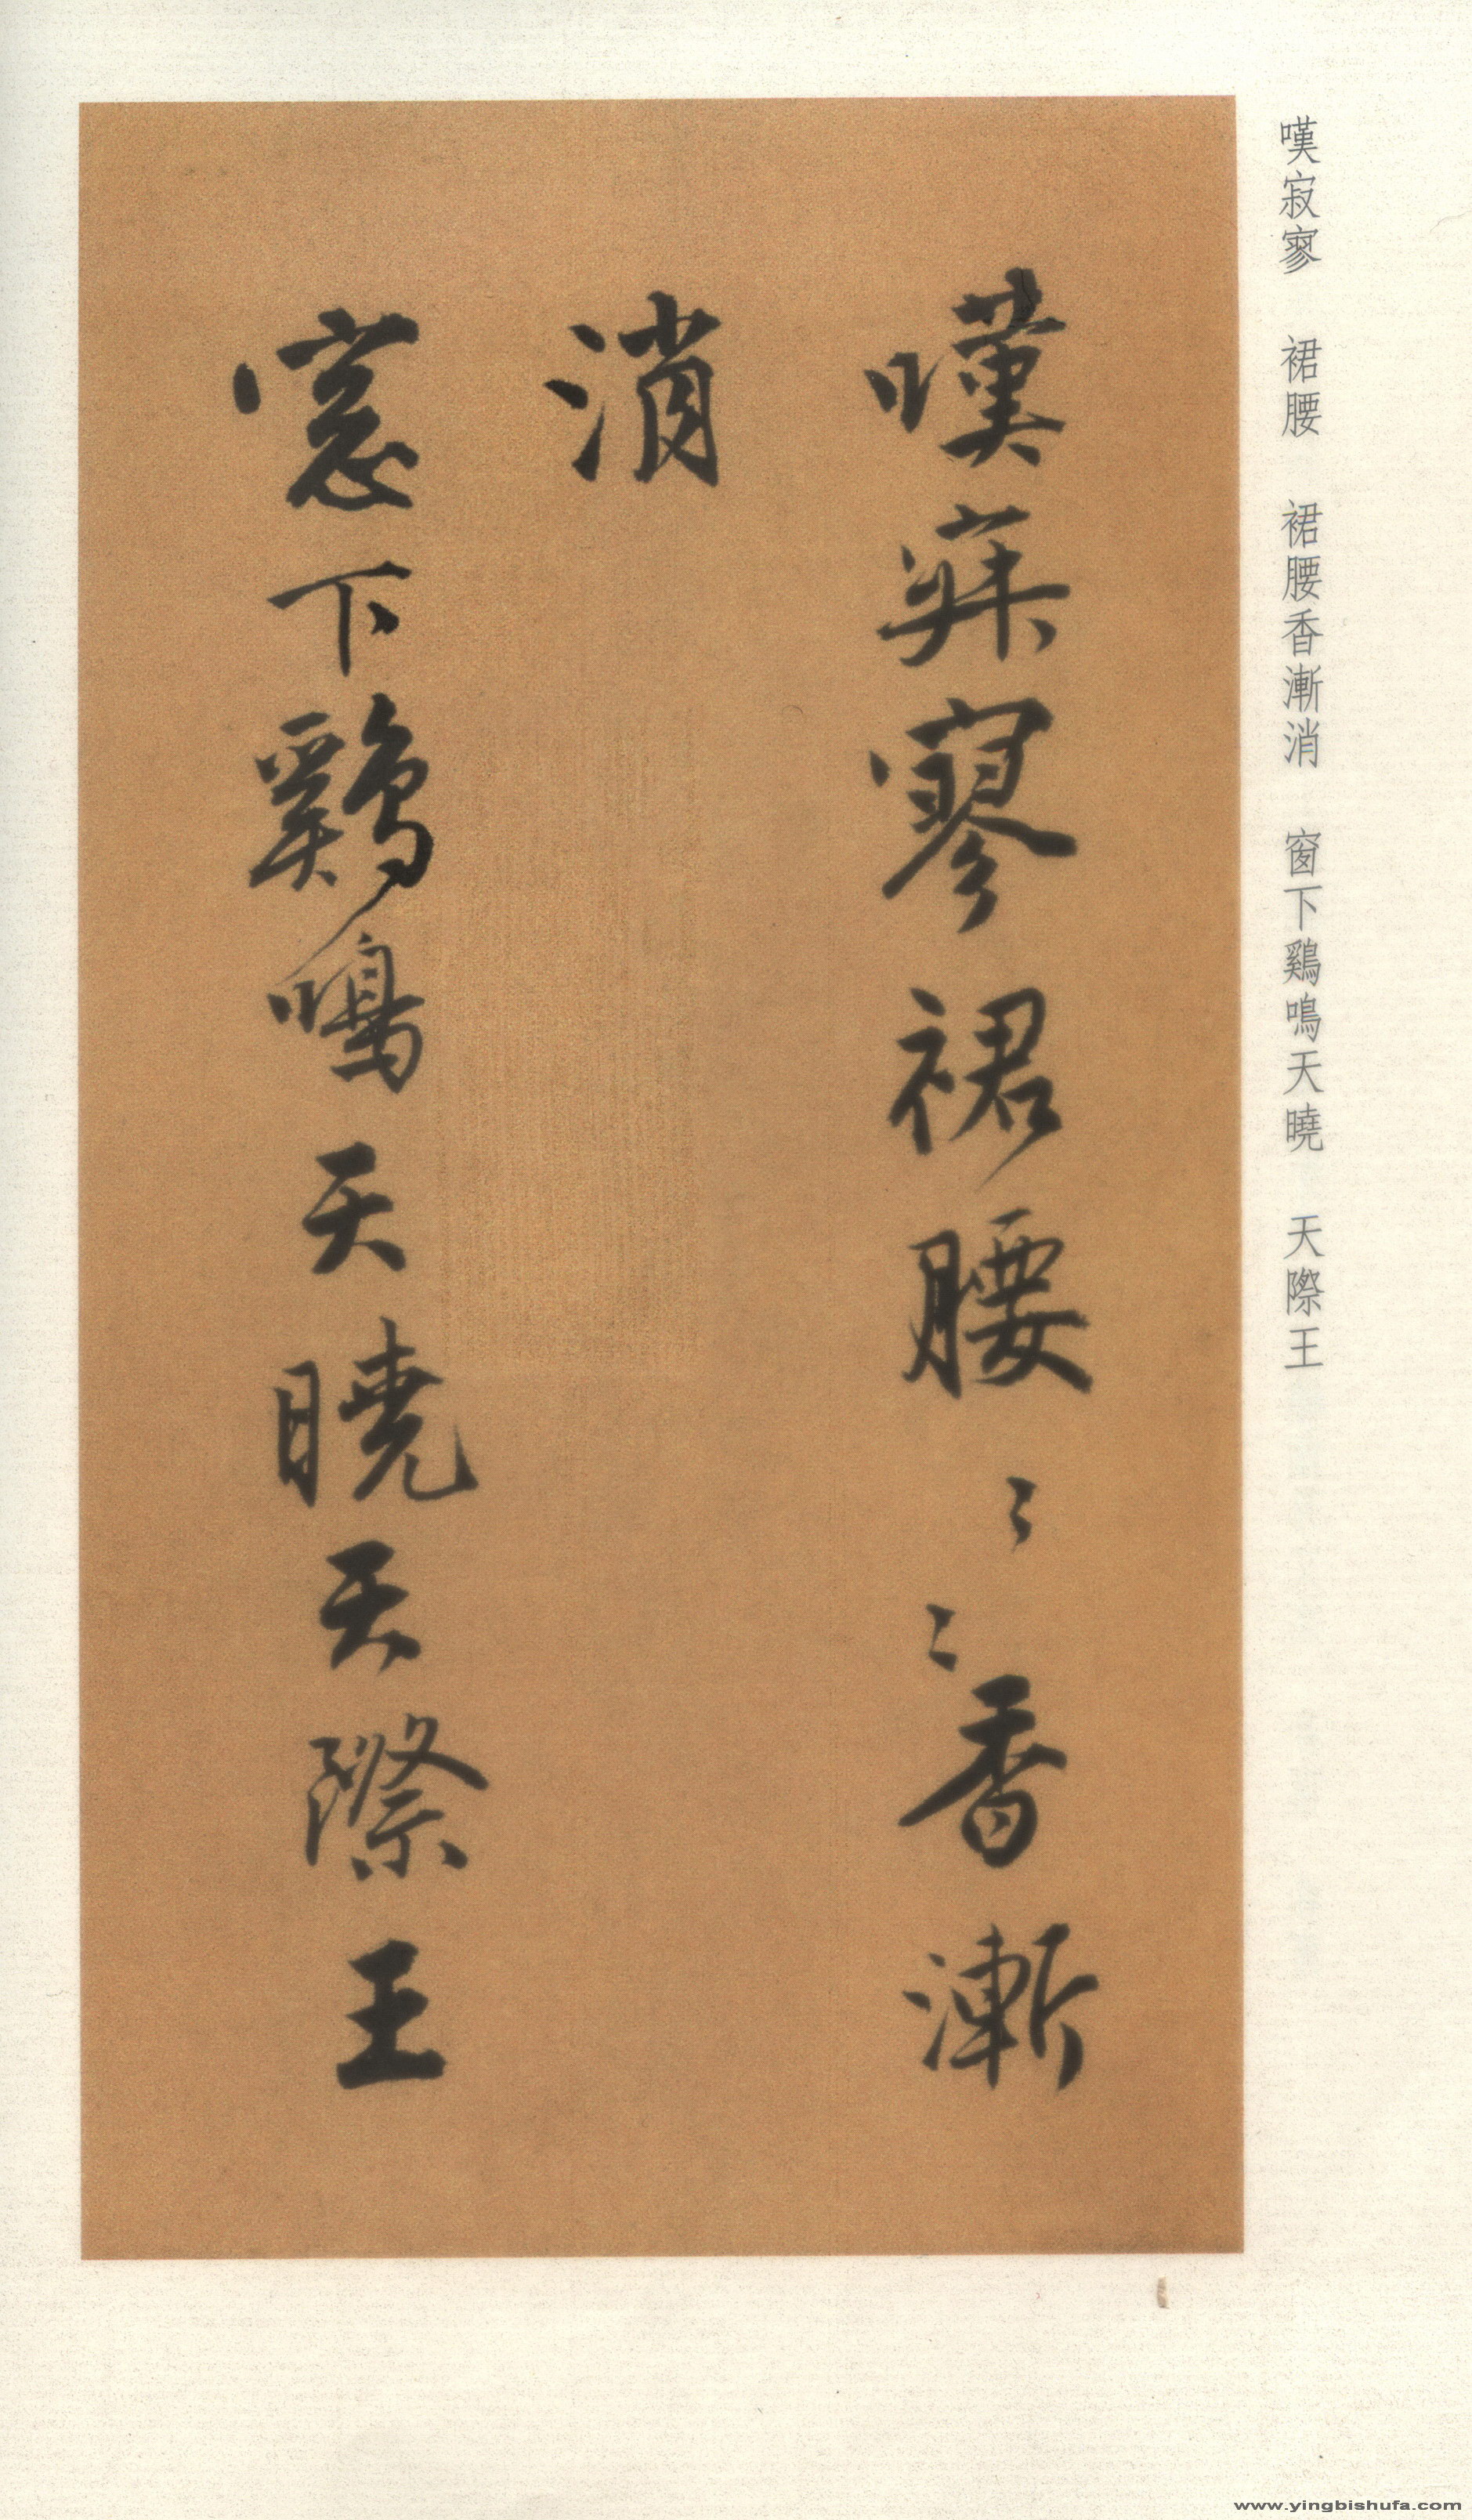 嘆寂寥　裙腰　裙腰香漸消　窗下鷄鳴天曉　天際王
嘆寂寥裙腰〻〻香漸
消
窓下鷄鳴天曉天際王
www.yingbishufa.com